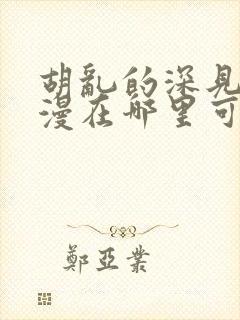 胡亂的深見
漫在哪里可
鄭亞業